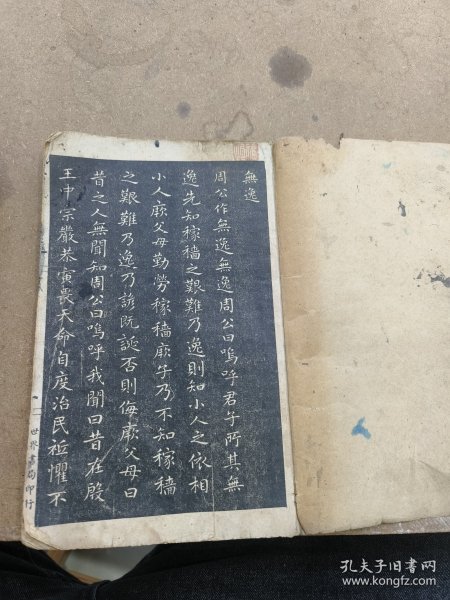 無逸
周公作無逸無逸周公曰嗚呼君子所其無
逸先知稼穡之艱難乃逸則知小人之依相
小人厥父母勤勞稼穡厥子乃不知稼穡
之艱難乃逸乃諺既誕否則侮厥父母曰
昔之人無聞知周公曰嗚呼我聞曰昔在殷
王中宗嚴恭寅畏天命自度治民祗懼不
世界書局印行
孔夫子旧书网
www.kongfz.com